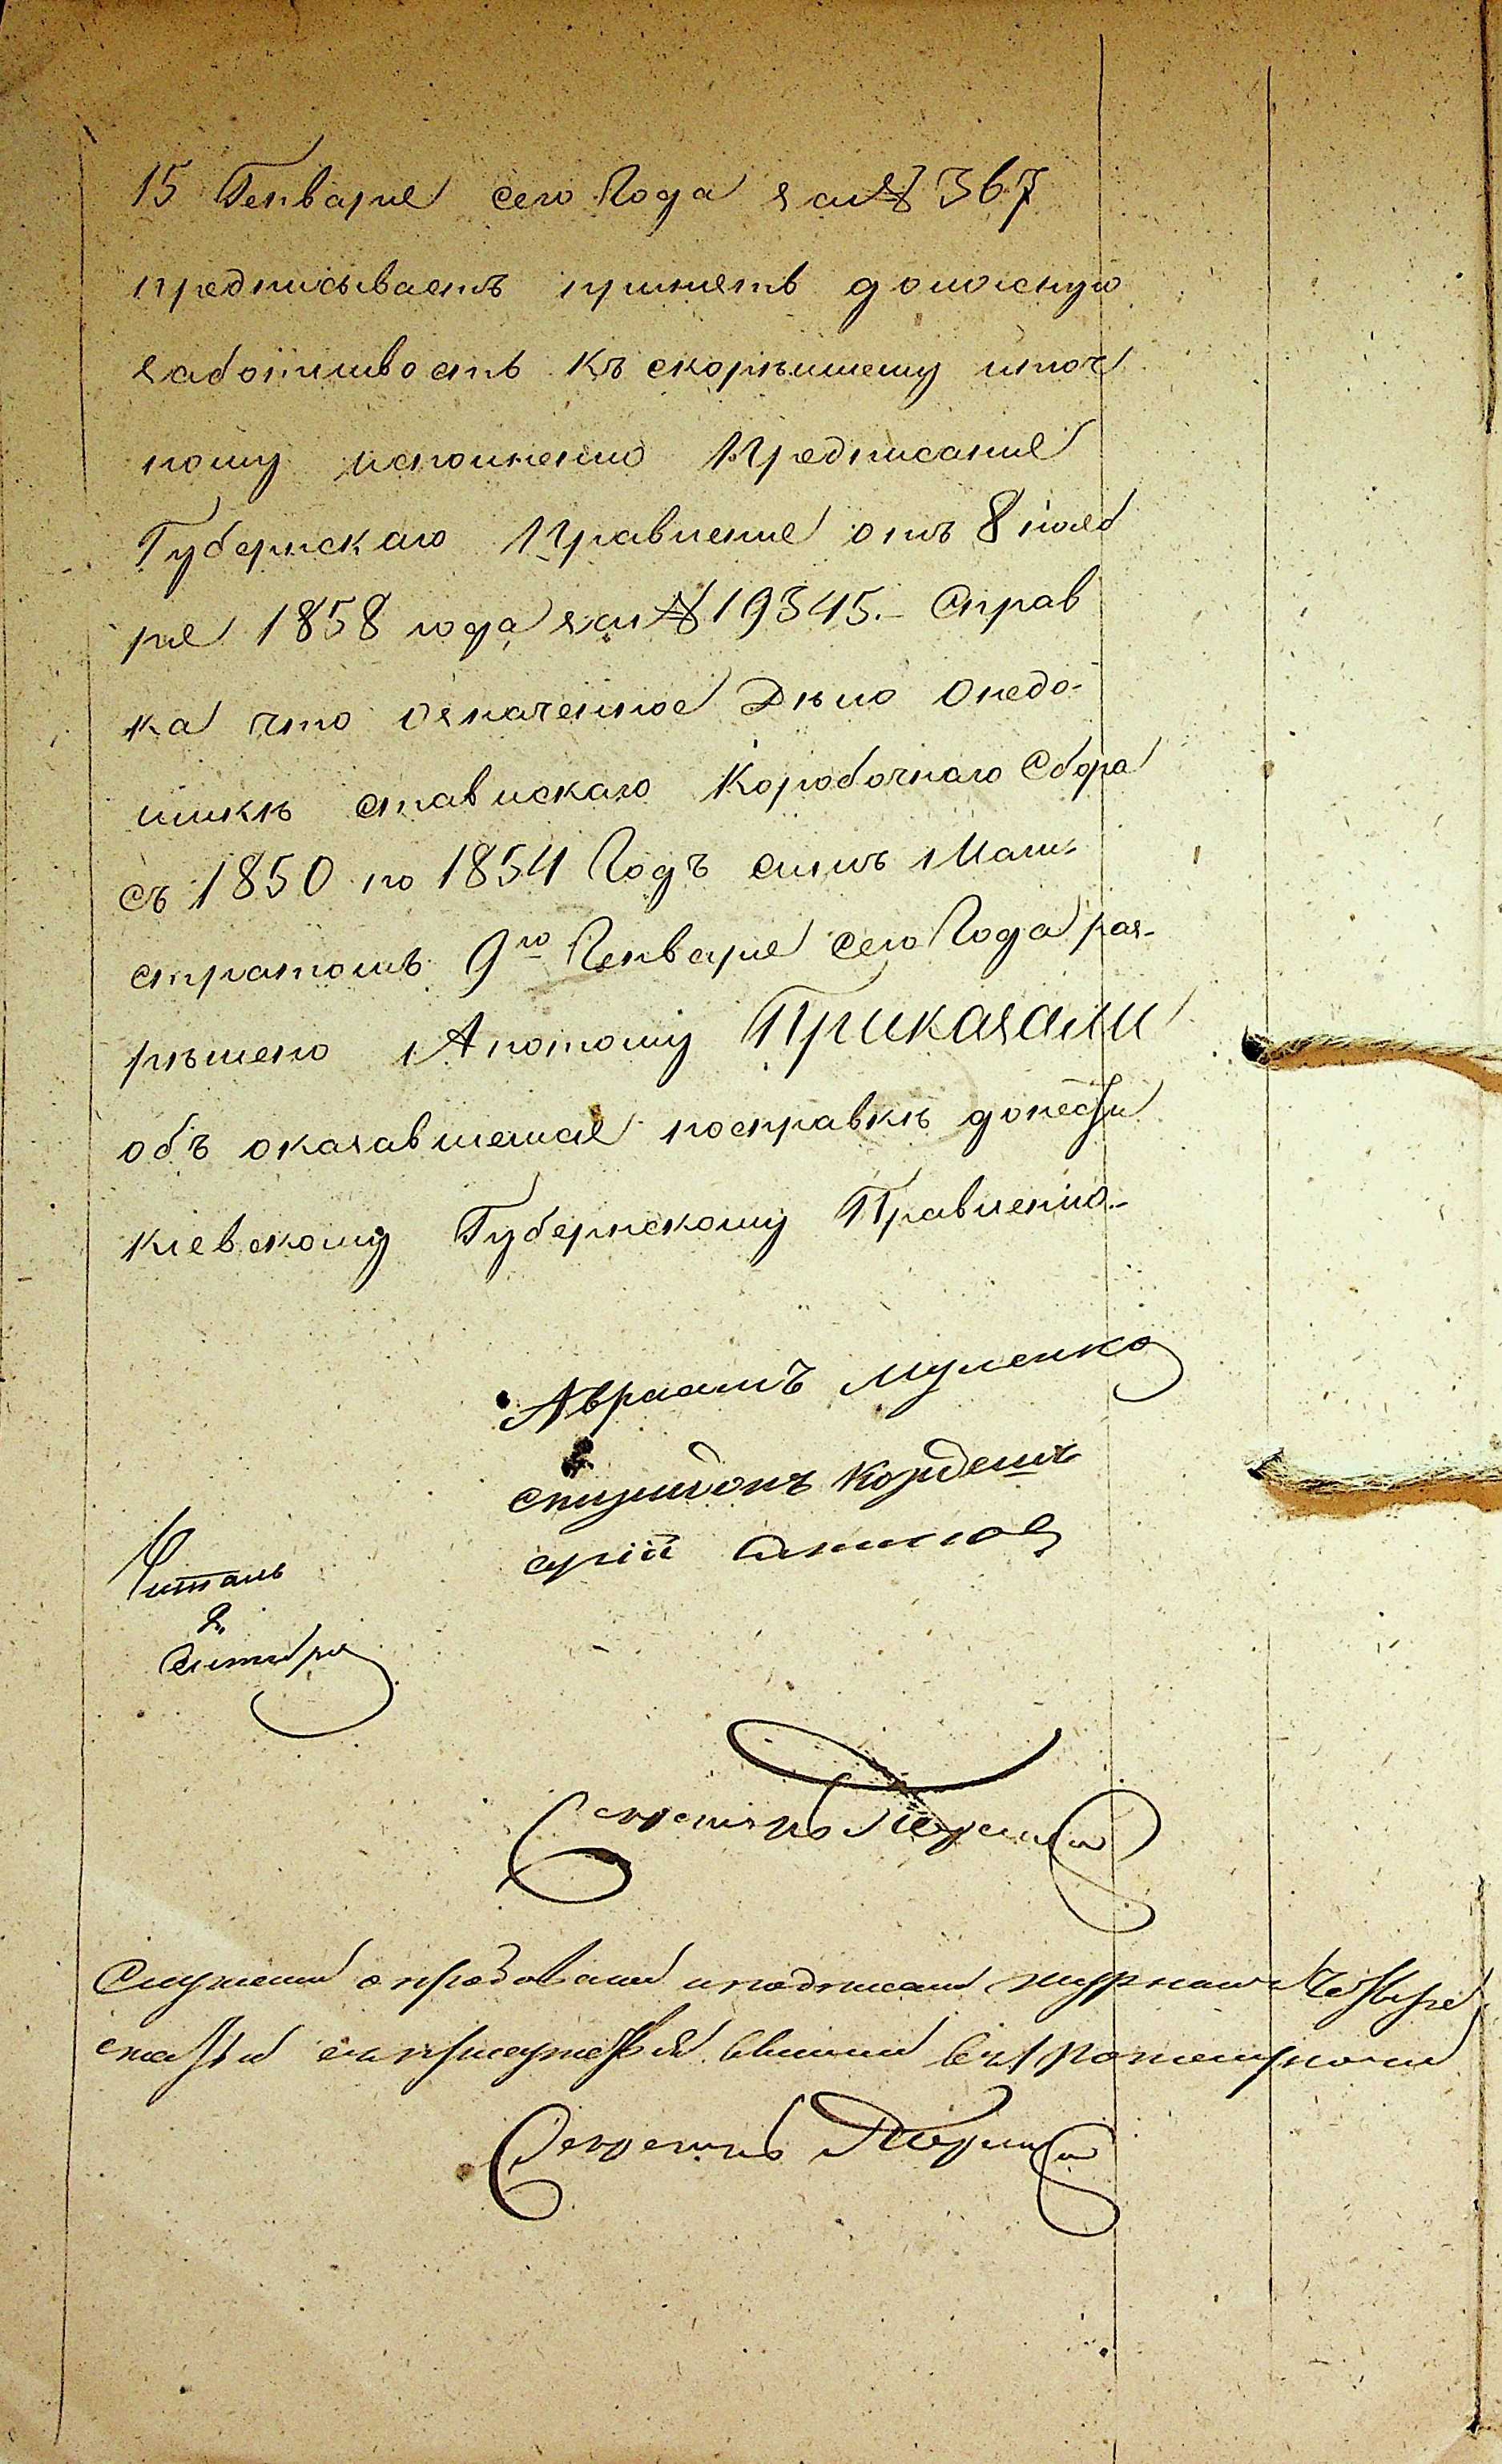 15 Генваря сего Года за № 367
предписываетъ принять должную
заботливость къ скорѣйшему иточ
ному исполненію Предписания
Губернскаго Правления отъ 8 нояб
ря 1858 года за № 19345.- Справ
ка что означенное Дѣло Онедо-
имкѣ ставискаго Коробочнаго Сбора
съ 1850 по 1854 Годъ симъ Маги-
стратомъ 9го Генваря сего Года раз-
рѣшено Апотому Приказали
объ оказавшемся посправкѣ донести
Кіевскому Губернскому Правлению.-
Авраамъ
Спиридонъ
Читалъ
Секретарь
Слушали и подписали журналъ Четыре
статьи
Секретарь